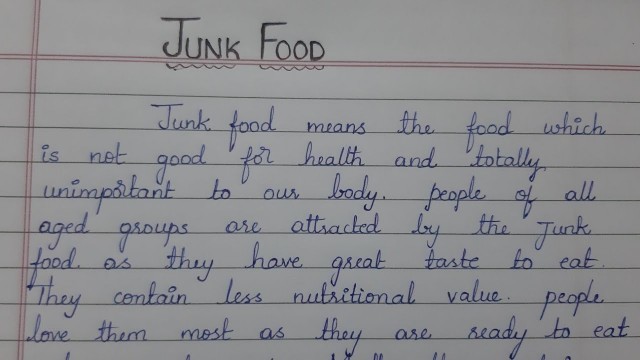 JUNK FOOD
Junk food means the food which
is not good for health and totally
unimportant to our body. people of all
aged groups are attracted by the Junk
food. as they have great taste to eat.
They contain less nutritional value. people
love them most as they are ready to eat